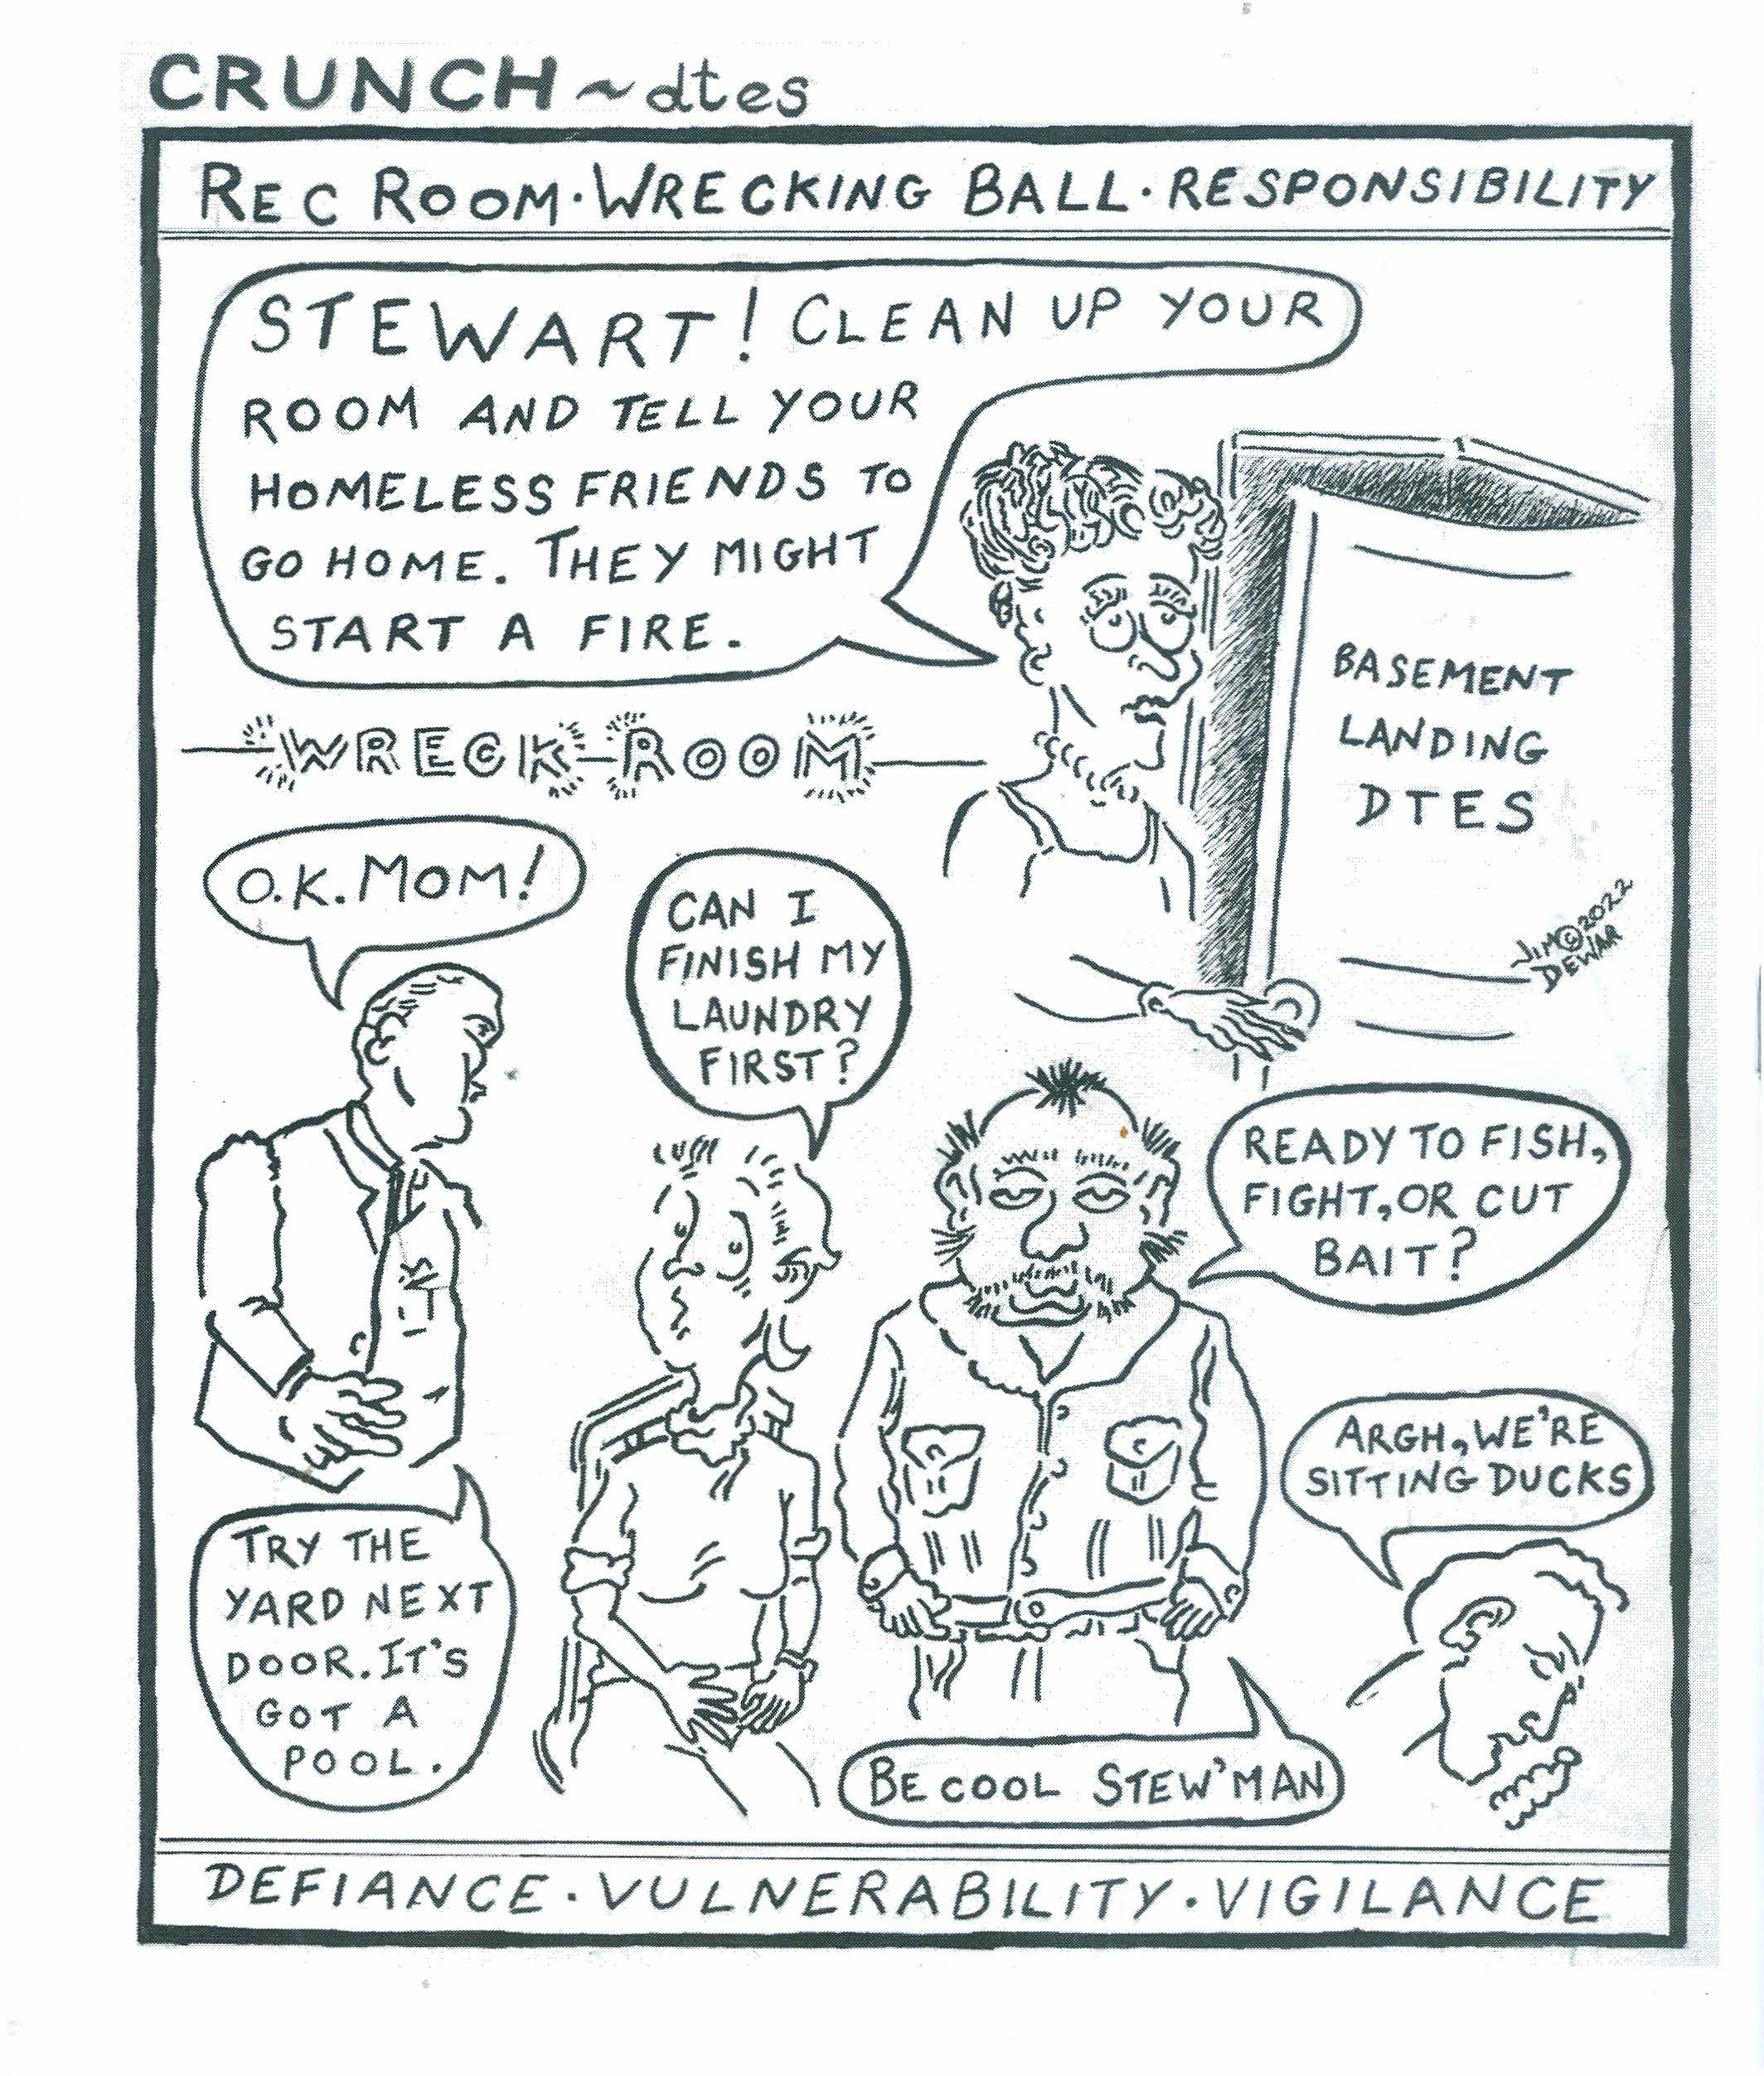 CRUNCH ~ dtes
REC ROOM · WRECKING BALL · RESPONSIBILITY
STEWART! CLEAN UP YOUR
ROOM AND TELL YOUR
HOMELESS FRIENDS TO
GO HOME. THEY MIGHT
START A FIRE.
WRECK-ROOM
BASEMENT
LANDING
DTES
JIM © 2022
DEWAR
O.K. MOM!
CAN I
FINISH MY
LAUNDRY
FIRST?
READY TO FISH,
FIGHT, OR CUT
BAIT?
ARGH, WE'RE
SITTING DUCKS
TRY THE
YARD NEXT
DOOR. IT'S
GOT A
POOL.
BE COOL STEW'MAN
DEFIANCE · VULNERABILITY · VIGILANCE